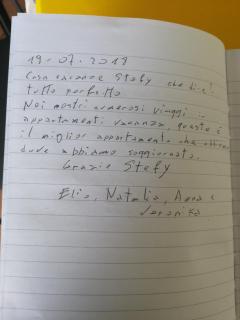 19.07.2018
Casa vacanze Stefy che dire!
tutto perfetto
Nei nostri numerosi viaggi in
appartamenti vacanza, questo è
il miglior appartamento che
dove abbiamo soggiornato.
Grazie Stefy
Elio, Natalia, Anna e
Veronika